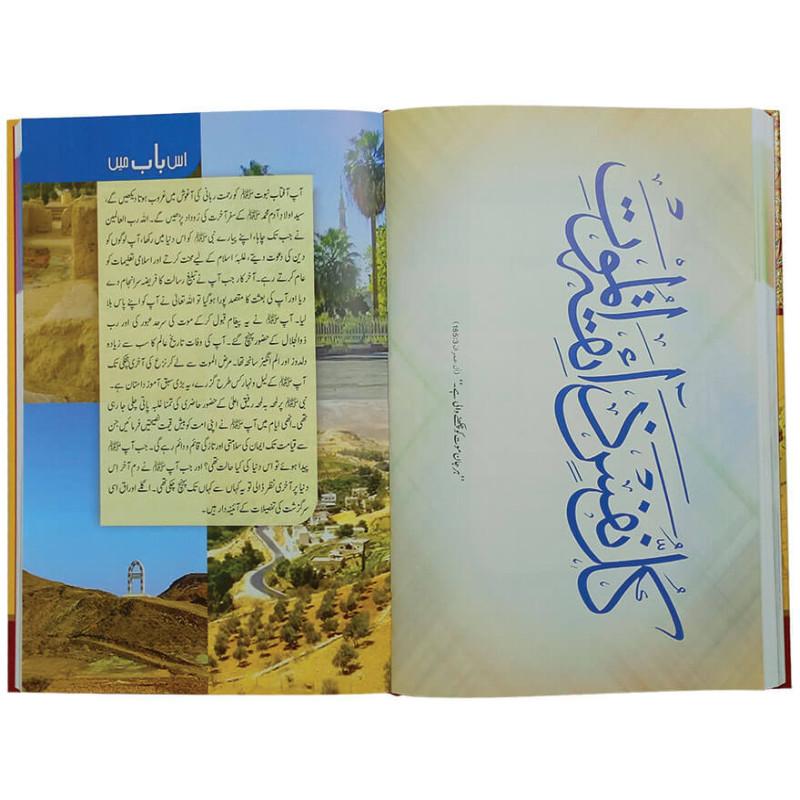 كُلُّ نَفْسٍ ذَائِقَةُ الْمَوْتِ
"ہر جان موت کو چکھنے والی ہے۔" (آل عمران 185:3)
اس باب میں
آپ آفتاب نبوت ﷺ کو رحمت ربانی کی آغوش میں غروب ہوتا دیکھیں گے،
سید اولاد آدم محمد ﷺ کے سفر آخرت کی روداد پڑھیں گے۔ اللہ رب العالمین
نے جب تک چاہا، اپنے پیارے نبی ﷺ کو اس دنیا میں رکھا، آپ لوگوں کو
دین کی دعوت دیتے، غلبۂ اسلام کے لیے محنت کرتے اور اسلامی تعلیمات کو
عام کرتے رہے۔ آخر کار جب آپ نے تبلیغ رسالت کا فریضہ سرانجام دے
دیا اور آپ کی بعثت کا مقصد پورا ہو گیا تو اللہ تعالیٰ نے آپ کو اپنے پاس بلا
لیا۔ آپ ﷺ نے یہ پیغام قبول کر کے موت کی سرحد عبور کی اور رب
ذوالجلال کے حضور پہنچ گئے۔ آپ کی وفات تاریخ عالم کا سب سے زیادہ
دلدوز اور الم انگیز سانحہ تھا۔ مرض الموت سے لے کر نزع کی آخری ہچکی تک
آپ ﷺ کے لیل و نہار کس طرح گزرے، یہ بڑی سبق آموز داستان ہے۔
نبی ﷺ پر لمحہ بہ لمحہ رفیق اعلیٰ کے حضور حاضری کی تمنا غلبہ پاتی چلی جا رہی
تھی۔ انھی ایام میں آپ ﷺ نے اپنی امت کو بیش قیمت نصیحتیں فرمائیں جن
سے قیامت تک ایمان کی سلامتی اور تازگی قائم و دائم رہے گی۔ جب آپ ﷺ
پیدا ہوئے تو اس دنیا کی کیا حالت تھی؟ اور جب آپ ﷺ نے دم آخر اس
دنیا پر آخری نظر ڈالی تو یہ کہاں سے کہاں تک پہنچ چکی تھی۔ اگلے اوراق اسی
سرگزشت کی تفصیلات کے آئینہ دار ہیں۔